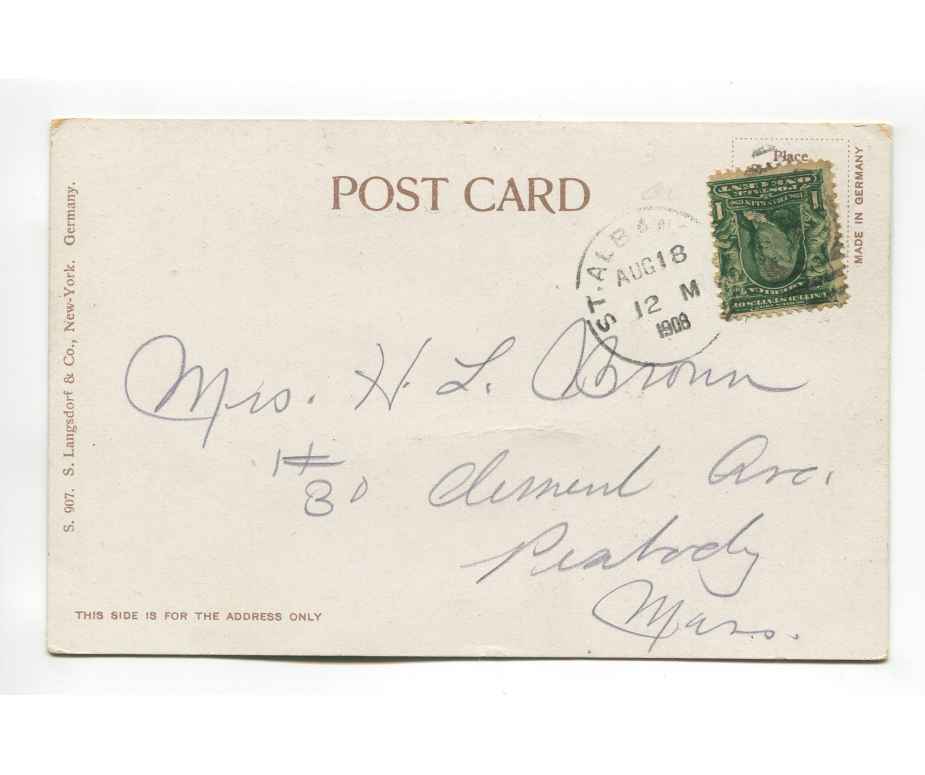 POST CARD
Place
MADE IN GERMANY
ONE CENT
POSTAGE
1 1
AMERICA
UNITED STATES OF
ST. ALBANS
AUG 18
12 M
1908
S. 907. S. Langsdorf & Co., New-York. Germany.
Mrs. H. L. Brown
# 30 Clement Ave.
Peabody
Mass.
THIS SIDE IS FOR THE ADDRESS ONLY